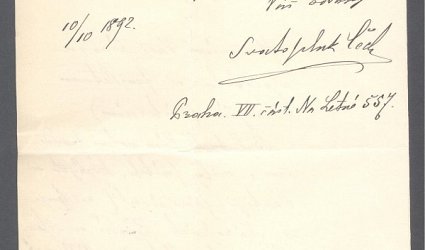 Váš oddaný
10/10 1892.
Svatopluk Čech
Praha. VII. část. Na Letné 557.